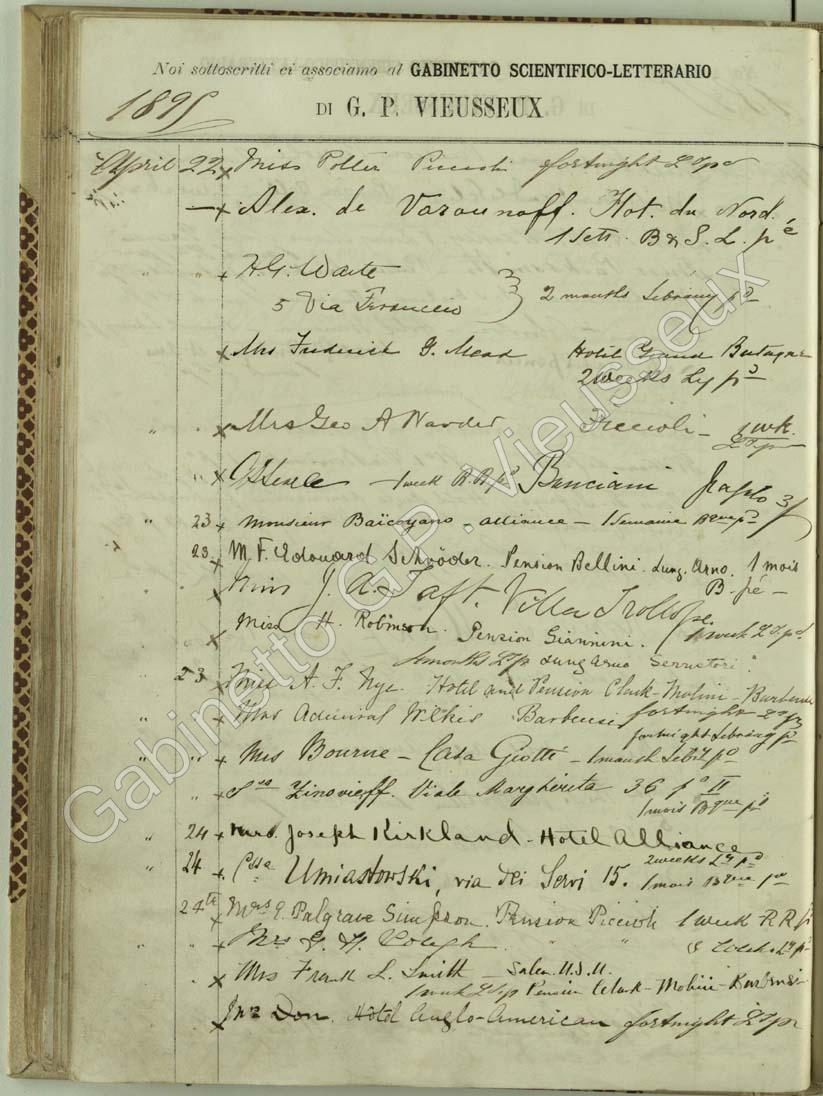 Noi sottoscritti ci associamo al GABINETTO SCIENTIFICO-LETTERARIO
DI G. P. VIEUSSEUX
1895
April 22 x Miss Potter Piccioli fortnight
— x Alex. de Varounoff. Hot. du Nord.
1 Sett. B & S. L. pé
" " x H. G. Waite
5 Via Feruccio } 2 months Library pd
x Mrs Frederick G. Mead Hotel Grand Bretagne
2 weeks Ly pd
" x Mrs Geo A Warder Piccioli — 1 wk.
" x 1 week R.R. pd Banciani
" 23 x Monsieur Baïcoyano - alliance — 1 Semaine
23 M. F. Edouard Schröder. Pension Bellini. Lung. Arno. 1 mois
B. pé —
Miss J. A. Taft. Villa Trollope.
1 week
x Miss H. Robinson. Pension Giannini.
Lung Arno Serristori
23 x Miss A. F. Nye. Hotel and Pension Clark-Molini-Barbensi
" x Mrs Admiral Wilkes Barbensi fortnight
fortnight Library pd
" " x Mrs Bourne — Casa Giotti — 1 month
" x Zinovieff. Viale Margherita 36 po II
1 mois Bque pé
" 24 x Mrs. Joseph Kirkland - Hotel Alliance
2 weeks Ly pd
" 24 x Csse Umiastowski, via dei Servi 15. 1 mois
24th x Mrs E. Palgrave Simpson. Pension Piccioli 1 week R R
" x Mrs G. H. " " week Ly pd
x Mrs Frank L. Smith — Salem U.S.A.
1 week Pension Clark-Molini-Barbensi
x Don. Hotel Anglo-American fortnight
Gabinetto G.P. Vieusseux